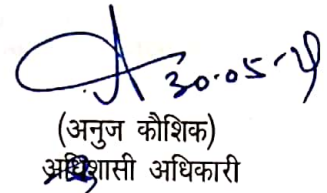 30.05-24
(अनुज कौशिक)
अधिशासी अधिकारी